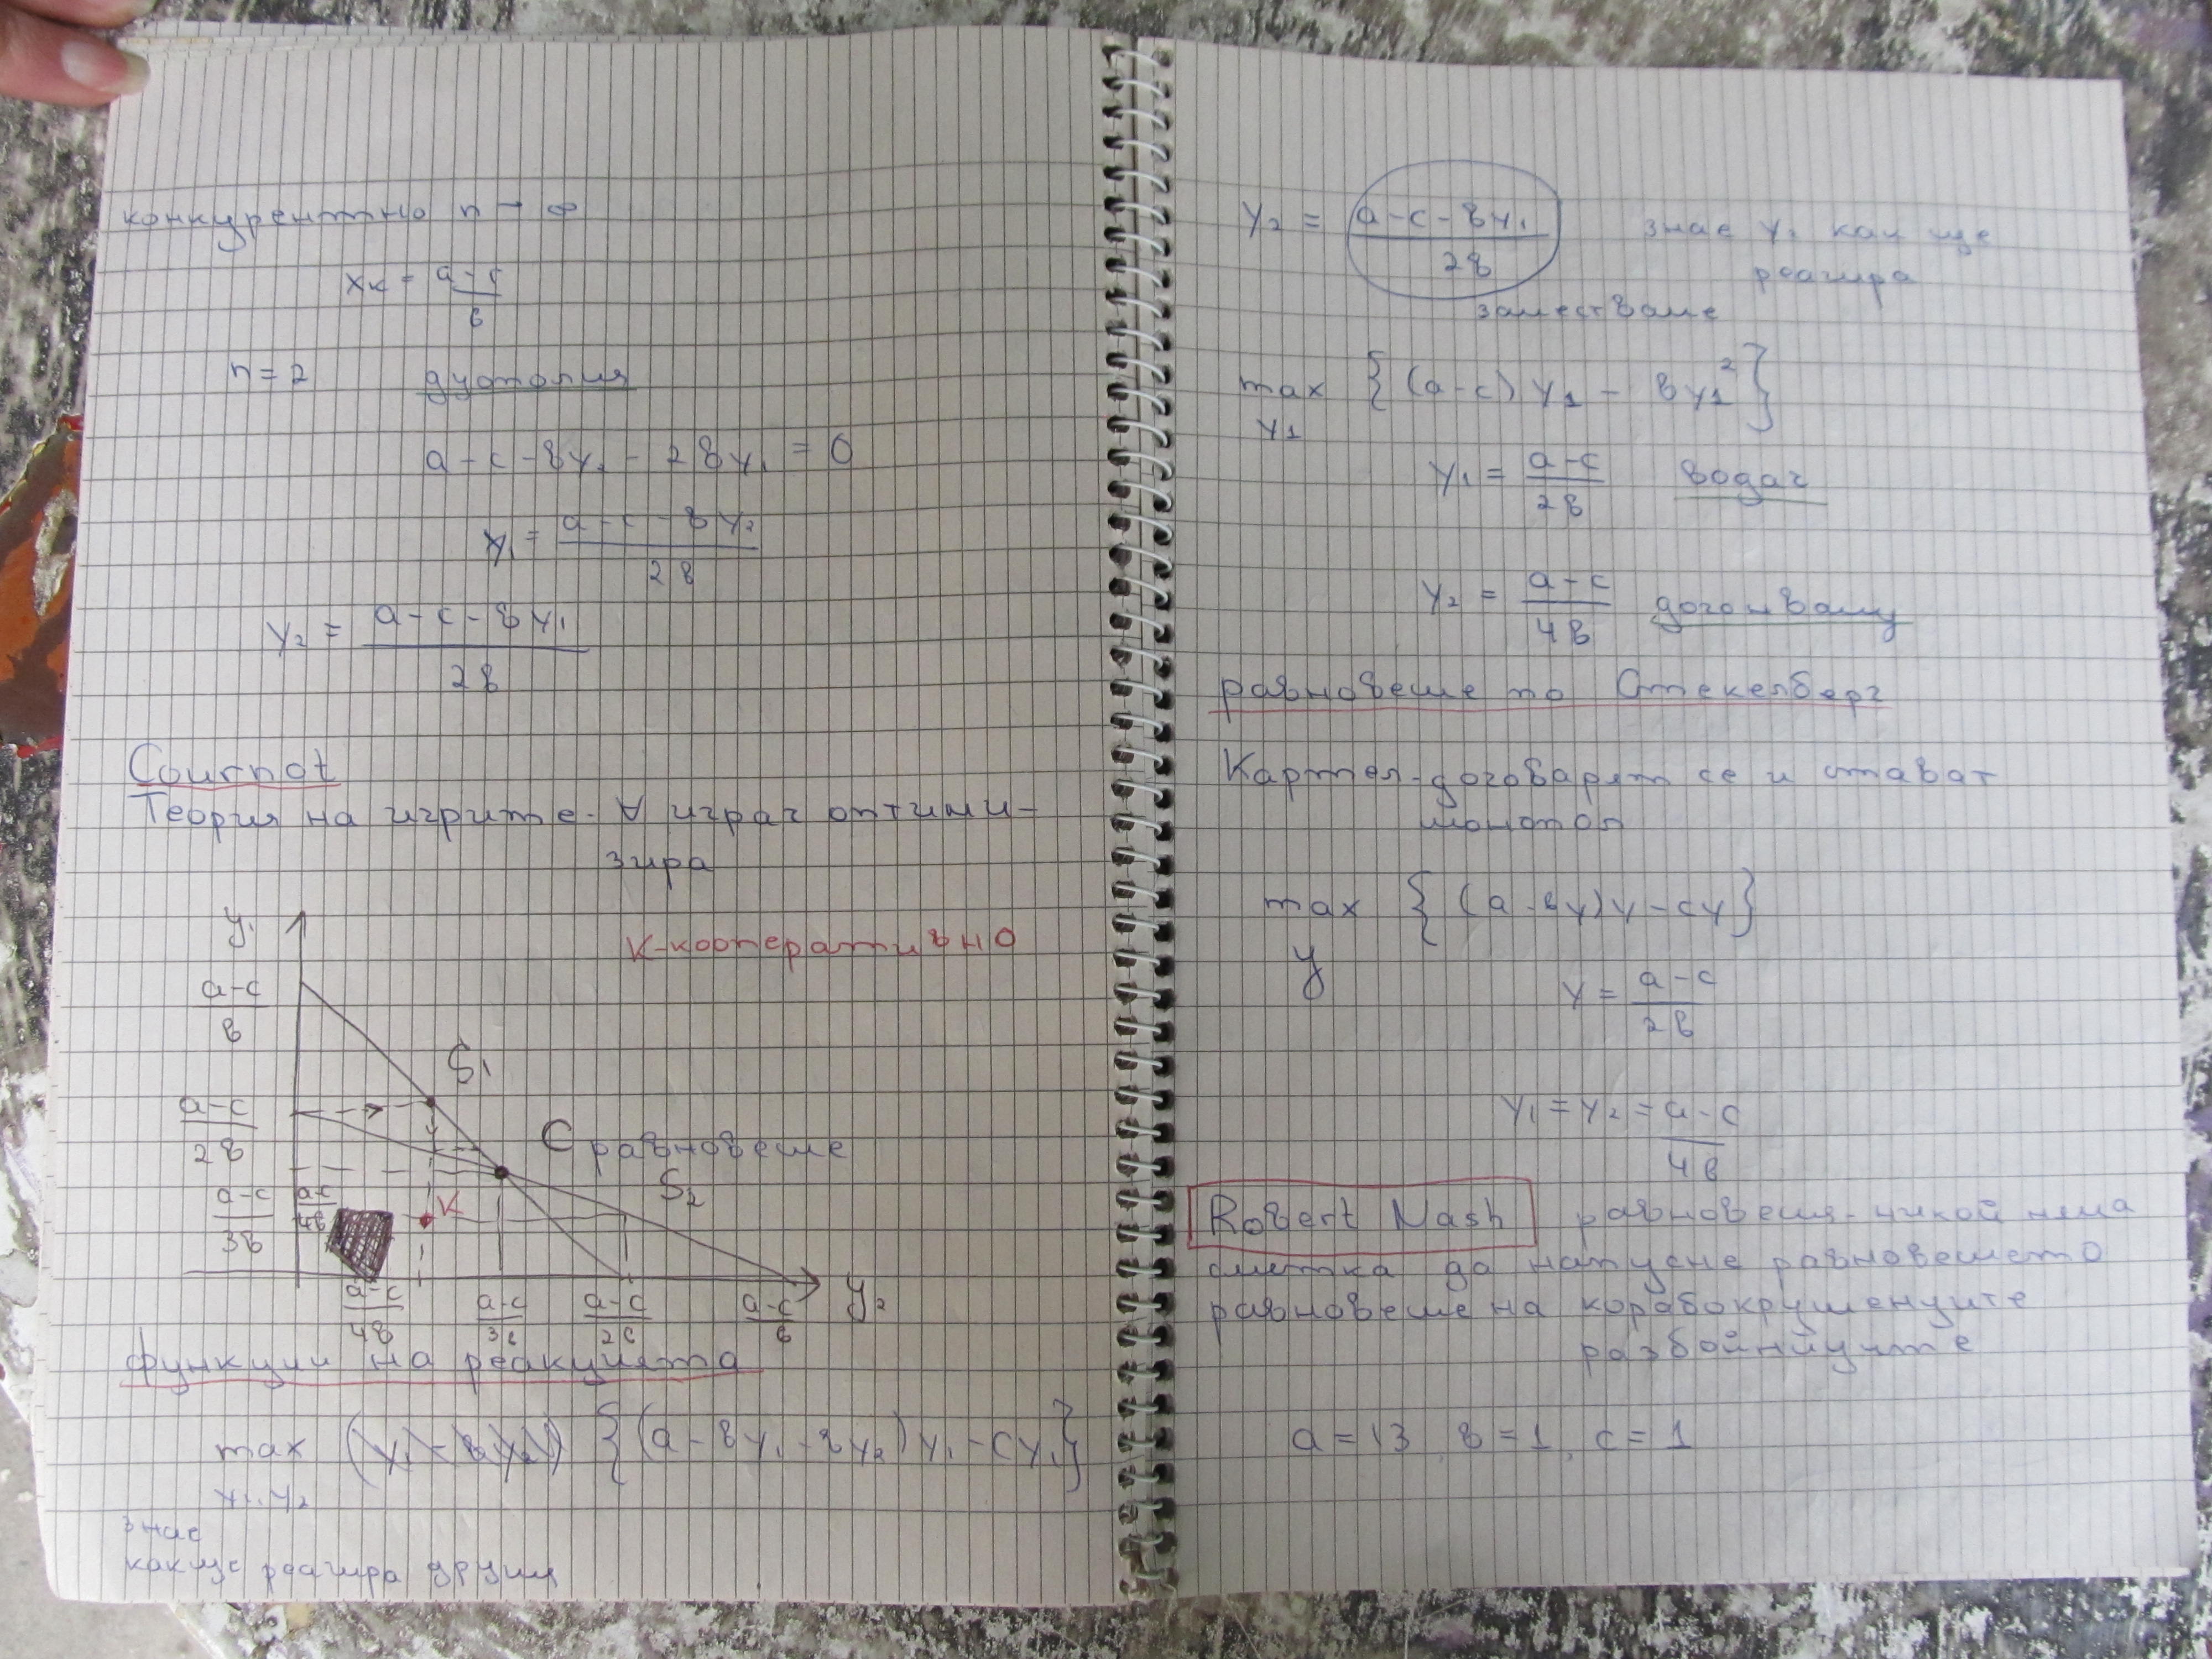 конкурентно n → ∞
xк = a-c/в
n = 2 дуополия
a - c - вy₂ - 2вy₁ = 0
y₁ = a - c - вy₂/2в
y₂ = a - c - вy₁/2в
Cournot
Теория на игрите - ∀ играч оптими-
зира
y₁
К-кооперативно
a-c/в
S₁
a-c/2в
C равновесие
S₂
a-c/3в
a-c/4в
K
a-c/4в a-c/3в a-c/2в a-c/в y₂
функции на реакцията
max {(a - вy₁ - вy₂)y₁ - cy₁}
y₁, y₂
знае
как ще реагира другия
y₂ = a - c - вy₁/2в знае как ще
реагира
заместваме
max {(a-c)y₁ - вy₁²}
y₁
y₁ = a-c/2в водач
y₂ = a-c/4в догонващ
равновесие по Стекелберг
Картел-договарят се и стават
монопол
max {(a - вy)y - cy}
y
y = a-c/2в
y₁ = y₂ = a-c/4в
Robert Nash равновесия-никой няма
сметка да напусне равновесието
равновесие на корабокрушенците
разбойниците
a = 13, в = 1, c = 1